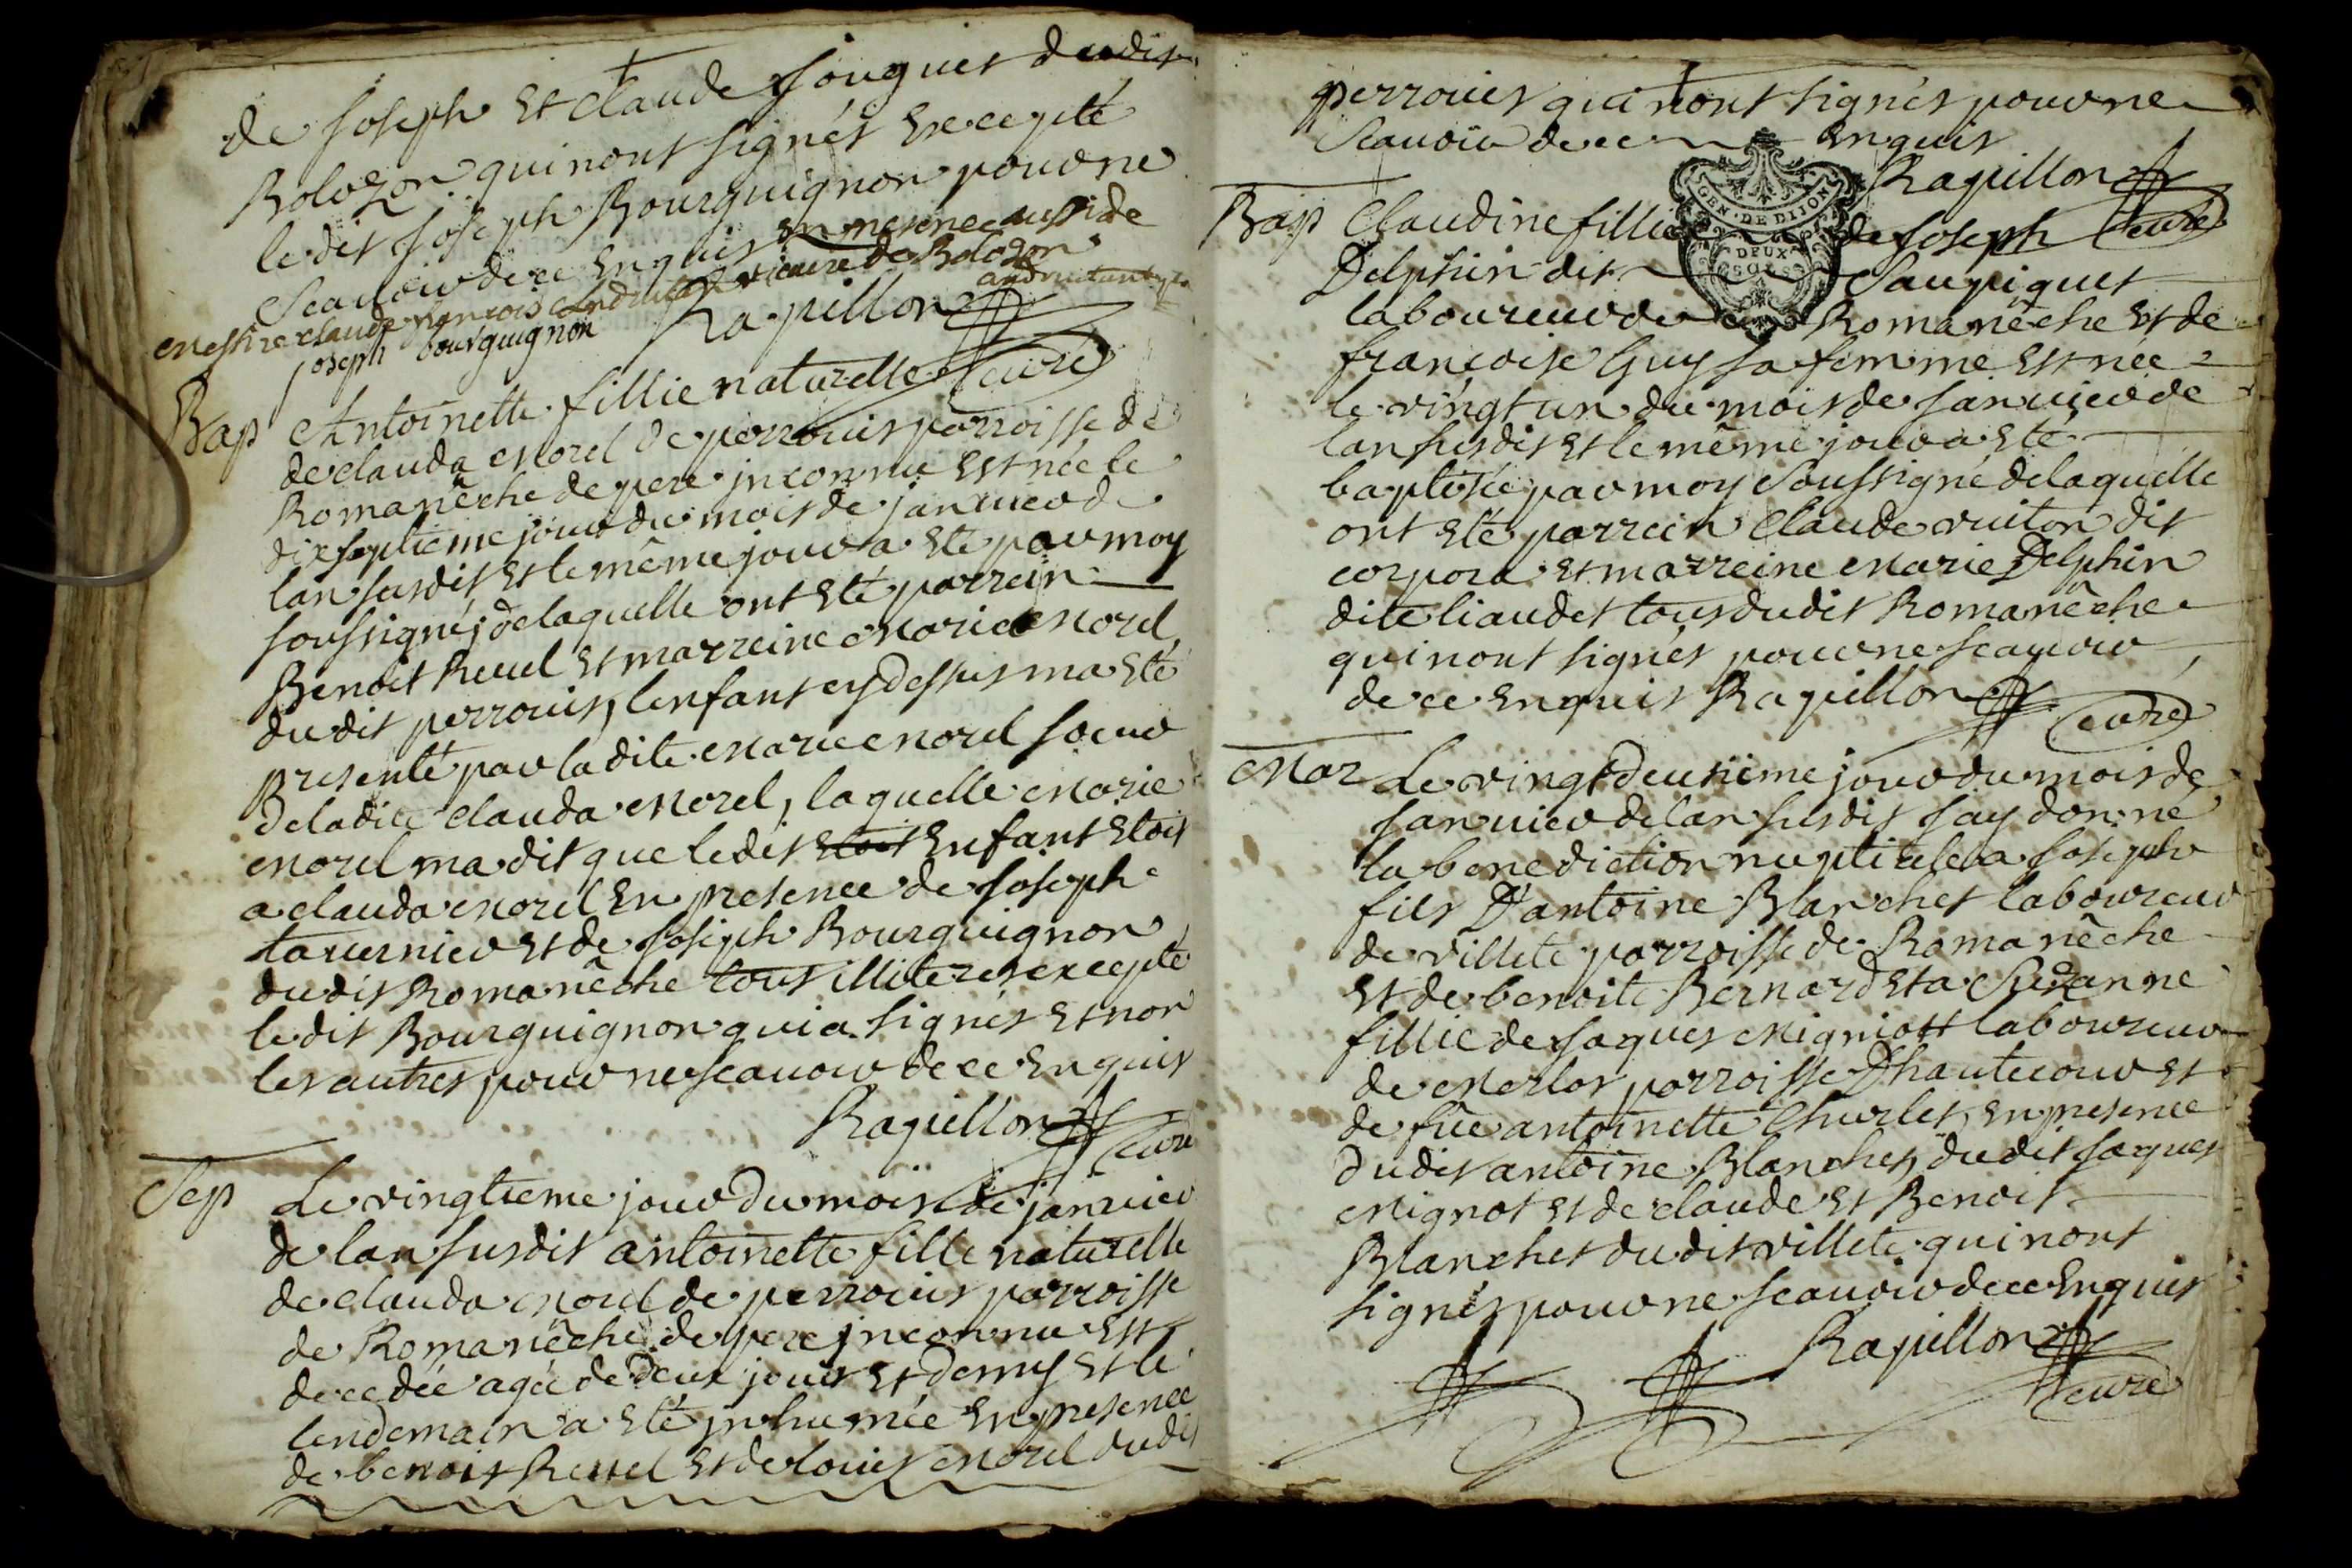 de Joseph et claude Jouguet dudit
Bolozon qui nont signés excepté
le dit Joseph Bourguignon pour ne
scauoir de ce enquis en presence aussi de
messire claude françois andruitan vicaire de Bolozon
joseph bourguignon Rapillon
curé
Bap Antoinette fillie naturelle
de clauda Morel de perrouis parroisse de
Romanêche de pere jnconnu est née le
dixseptieme jour du mois de januier de
lan susdit et le même jour a eté par moy
soussigné, de laquelle ont eté parrein
Benoit Reuel et marreine Marie Morel
du dit perrouis, lenfant cy dessus ma eté
presenté par la dite Marie Morel soeur
de la dite Clauda Morel, laquelle Marie
Morel ma dit que le dit etoit enfant etoit
a clauda Morel en presence de Joseph
tauernier et de Joseph Bourguignon
du dit Romanêche tous illiteres excepte
le dit Bourguignon qui a signés et non
les autres pour ne scauoir de ce enquis
Rapillon
curé
Sep Le vingtieme jour du mois de januier
de lan susdit antoinette fille naturelle
de clauda Morel de perrouis parroisse
de Romanêche de pere jnconnu est
decedée agée de deux jours et demy et le
lendemain a eté jnhumée en presence
de benoit Reuel et de louis Morel dudit
perrouis qui nont signés pour ne
scauoir de ce enquis
Rapillon
GEN · DE DIJON
DEUX
SOLS
Bap Claudine fillie de Joseph curé
Delphin dit Saupiquet
laboureur de Romanêche et de
françoise Guy sa femme est née
le vingt un du mois de Januier de
lan susdit et le même jour a eté
baptisée par moy soussigné de laquelle
ont eté parrein Claude vuiton dit
corpora et marreine Marie Delphin
dite liaudet tous dudit Romanêche
qui nont signés pour ne scauoir
de ce enquis Rapillon
curé
Mar Le vingtdeuxieme jour du mois de
Januier de lan susdit Jay donné
la benediction nuptiale a Joseph
fils D'antoine Blanchet laboureur
de villete parroisse de Romanêche
et de benoite Bernard et a Suzanne
fillie de Jaques Migniott laboureur
de Merlos parroisse Dhautecour et
de fûe antoinette Churlet, en presence
du dit antoine Blanchet, du dit Jaques
Mignot et de claude et Benoit
Blanchet du dit villete qui nont
signés pour ne scauoir de ce enquis
Rapillon
curé